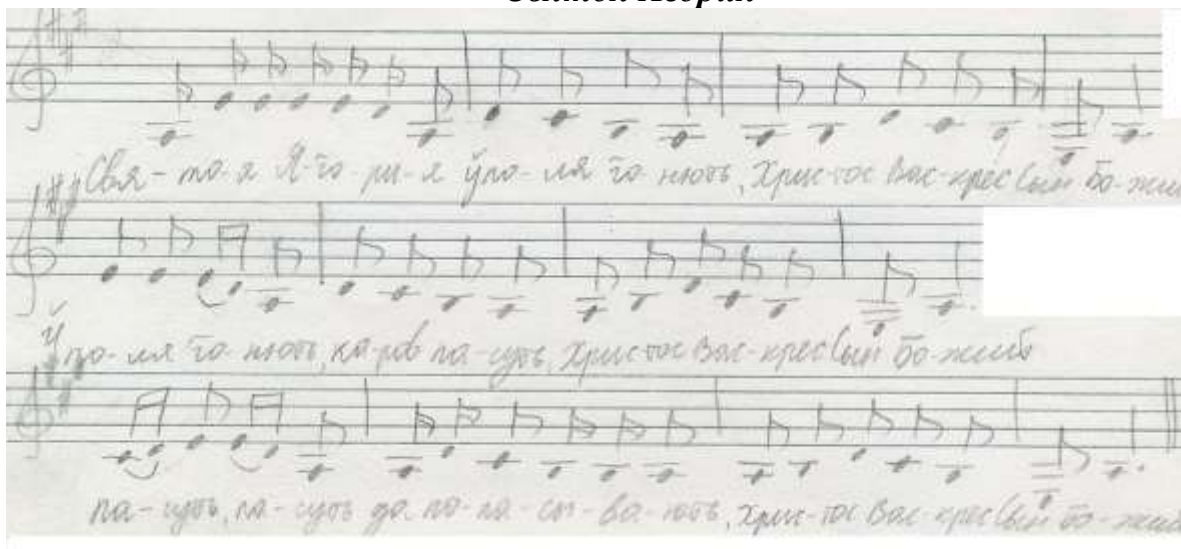 Свя-то-я Я-го-ри-я ўпо-ля го-нють, Хрис-тос Вас-крес Сын Бо-жи
Ў по-ля го-нють, ка-ров па-суть, Хрис-тос Вас-крес Сын Бо-жий
па-суть, па-суть да па-па-сы-ва-ють, Хрис-тос Вас-крес Сын Бо-жий